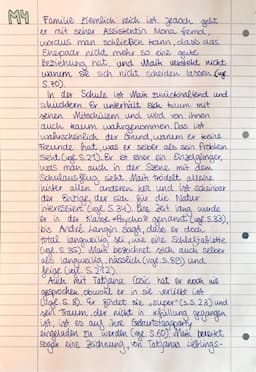 M4
Familie ziemlich reich ist. Jedoch geht
er mit seiner Assistentin Mona fremd,
woraus man schließen kann, dass das
Ehepaar nicht mehr so eine gute
Beziehung hat und Maik versteht nicht
warum sie sich nicht scheiden lassen (vgl.
S.70).
In der Schule ist Maik zurückhaltend und
schüchtern. Er unterhält sich kaum mit
seinen Mitschülern und wird von ihnen
auch kaum wahrgenommen. Das ist
wahrscheinlich der Grund, warum er keine
Freunde hat, was er selber als sein Problem
sieht (vgl. S.21). Er ist eher ein Einzelgänger,
was man auch in der Szene mit dem
Schulausflug sieht. Maik trödelt alleine
hinter allen anderen her und ist scheinbar
der Einzige, der sich für die Natur
interessiert (vgl. S.34). Eine Zeit lang wurde
er in der Klasse „Psycho" genannt (vgl. S.33),
bis André Langin sagt, dass er doch
total langweilig sei, wie eine Schlaftablette
(vgl. S.35). Maik bezeichnet sich auch selber
als langweilig, hässlich (vgl. S.89) und
feige (vgl. S.212).
Auch mit Tatjana Cosic hat er noch nie
gesprochen obwohl er in sie verliebt ist
(vgl. S.8). Er findet sie „super" (s. S.23) und
sein Traum, der nicht in Erfüllung gegangen
ist, ist es auf ihre Geburtstagsparty
eingeladen zu werden (vgl. S.60). Maik bereitet
sogar eine Zeichnung, von Tatjanas Lieblings-